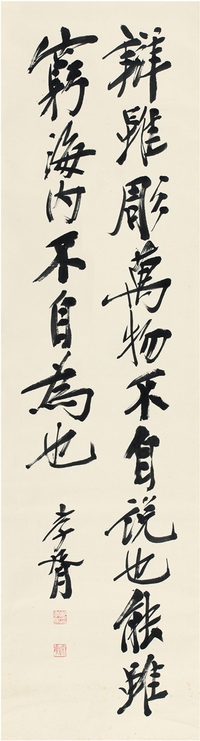 辯雖彫萬物不自説也能雖
窮海内不自為也
孝胥